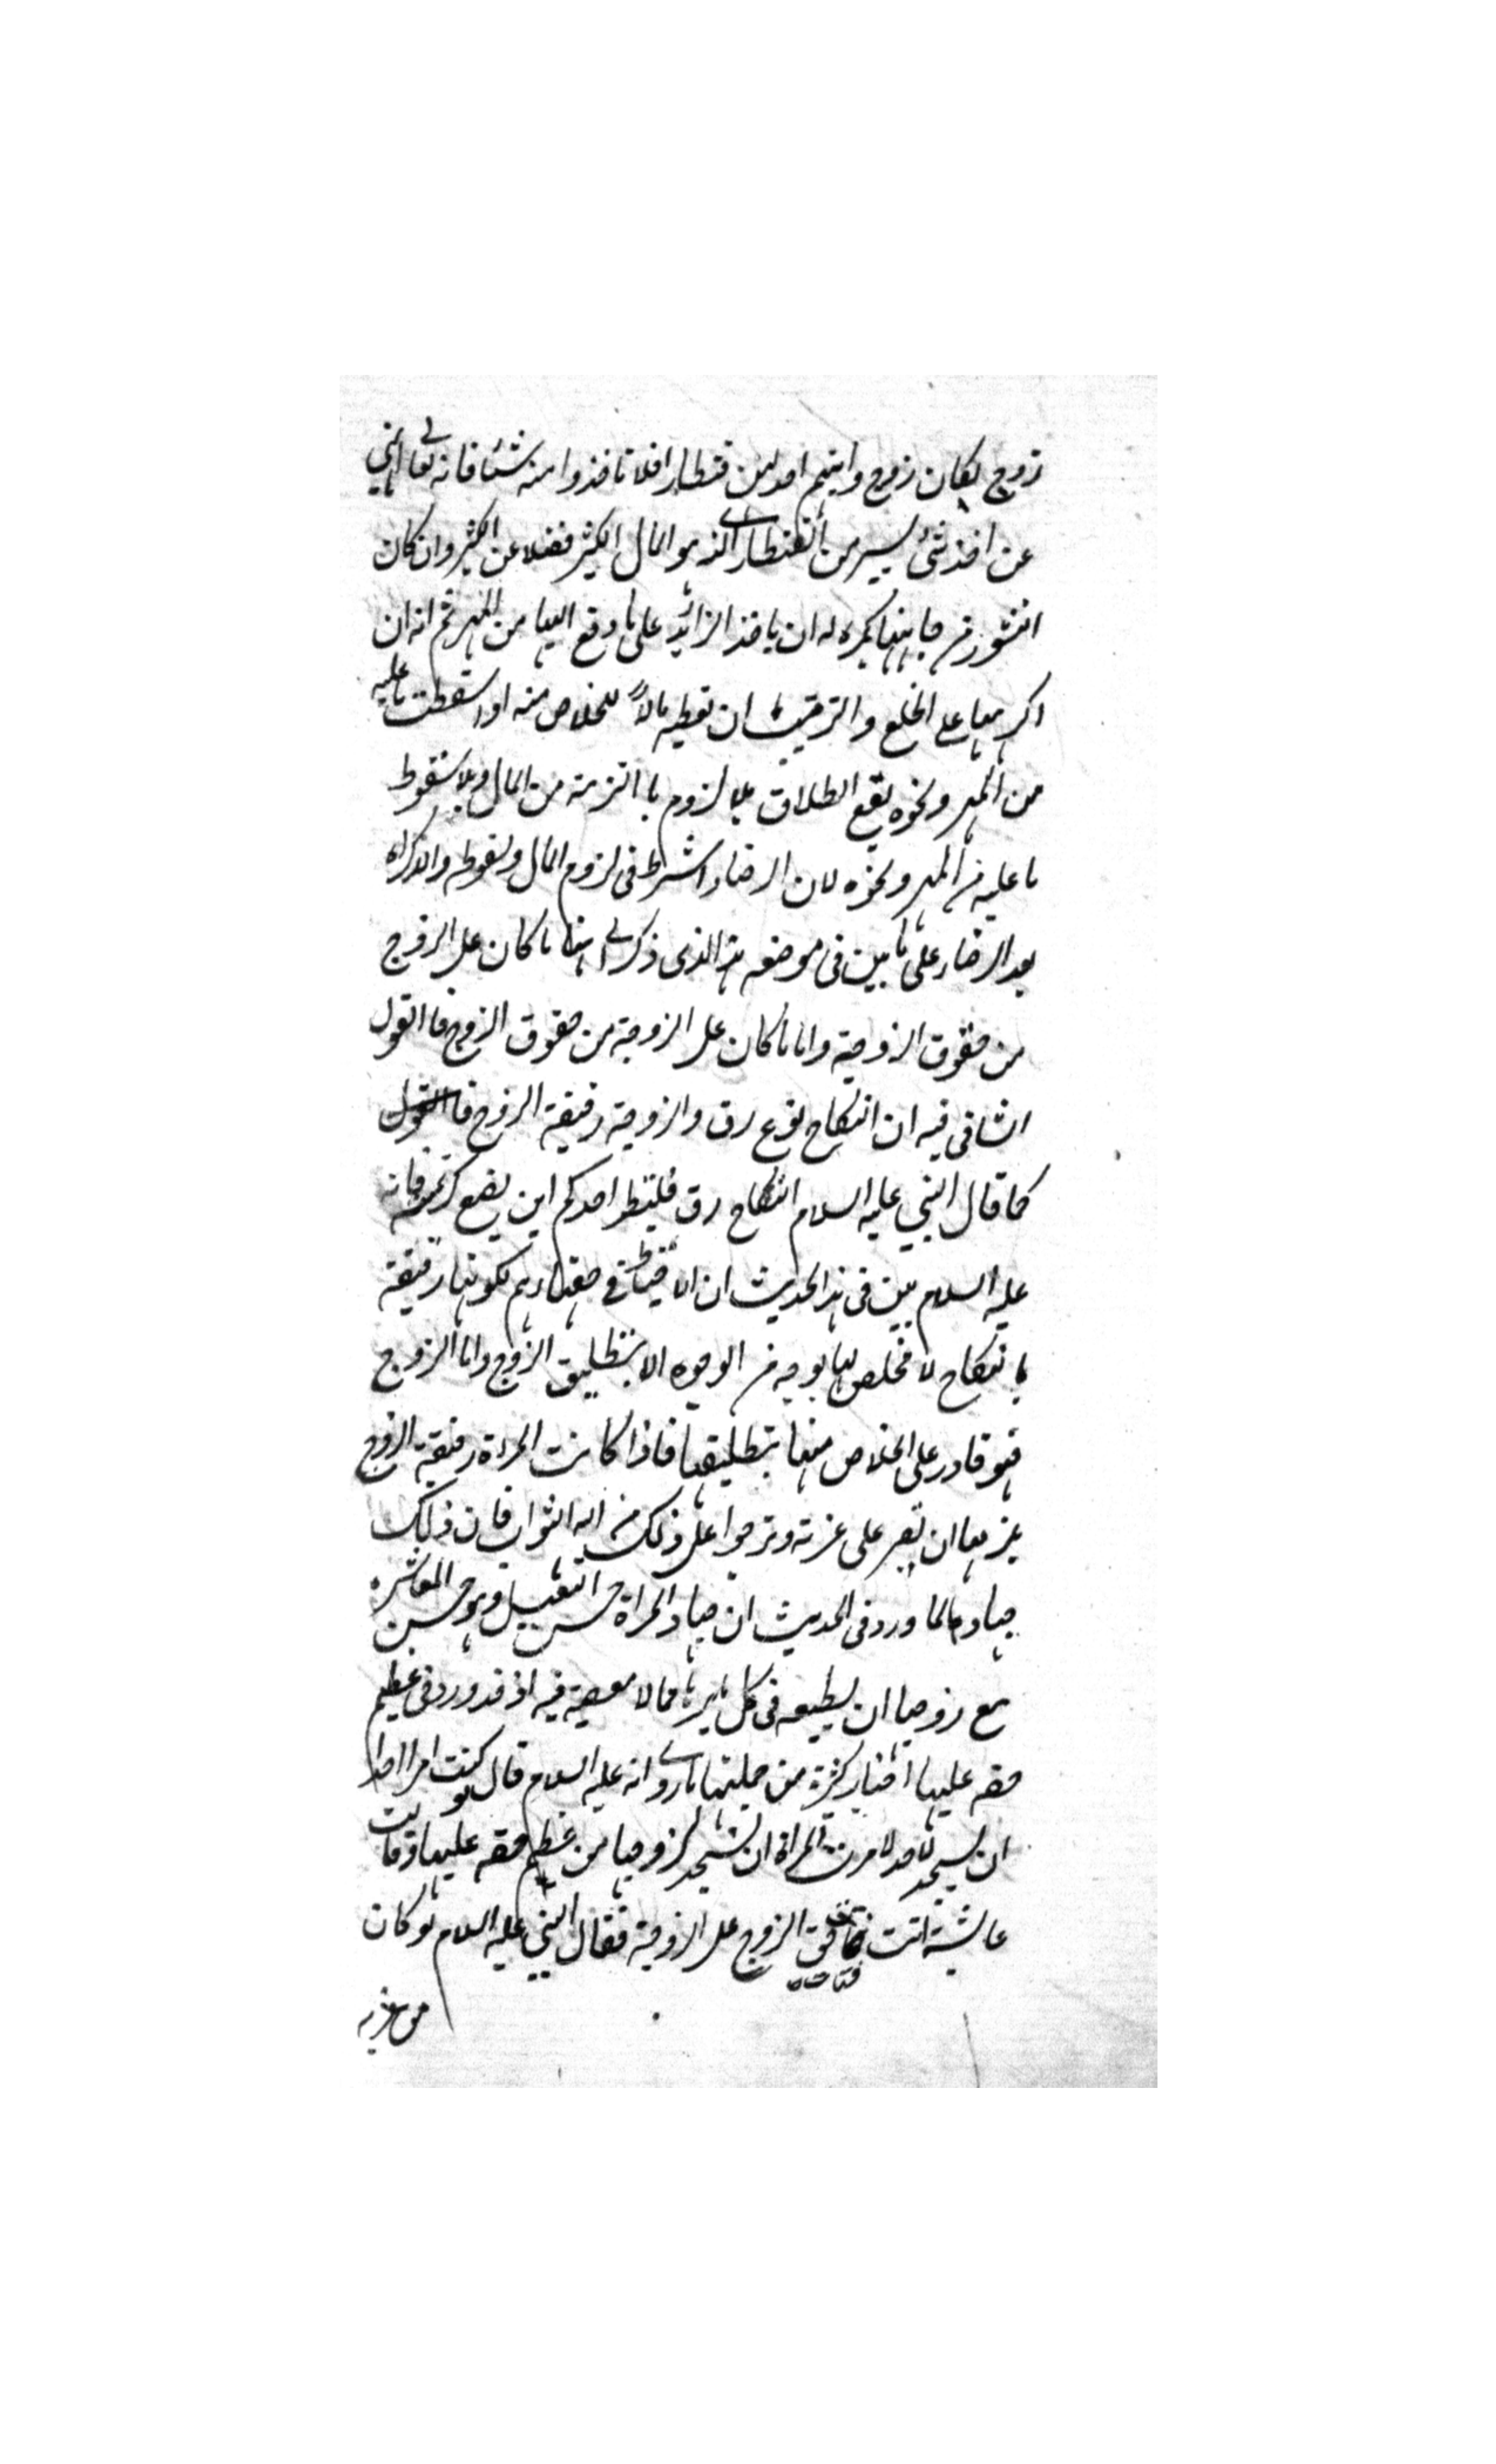 زوج مكان زوج واتيتم احديهن قنطارا فلا تاخذوا منه شئا فانه تعالى نهى
عن اخذ شئ يسير من القنطار الذى هو المال الكثير فضلا عن الكثير وان كان
النشوز من جانبها يكره له ان ياخذ الزائد على ما دفع اليها من المهر ثم انه ان
اكرهها على الخلع والتزمت ان تعطيه مالا للخلاص منه او اسقطت ما عليه
من المهر ونحوه يقع الطلاق بلا لزوم ما التزمته من المال وبلا سقوط
ما عليه من المهر ونحوه لان الرضاء شرط فى لزوم المال وسقوطه والاكراه
يعد الرضاء على ما بين فى موضعه هذا الذى ذكر الى هنا ما كان على الزوج
من حقوق الزوجة واما ما كان على الزوجة من حقوق الزوج فالقول
الشافى فيه ان النكاح نوع رق والزوجة رقيقة الزوج
كما قال النبي عليه السلام النكاح رق فلينظر احدكم اين يضع كريمته فانه
عليه السلام بين فى هذا الحديث ان الاحتياط فى حقها اهم لكونها رقيقة
بالنكاح لا مخلص لها بوجه من الوجوه الا بتطليق الزوج واما الزوج
فهو قادر على الخلاص منها بتطليقها فاذا كانت المراة رقيقة الزوج
يلزمها ان تصبر على عزته وترجوا على ذلك من الله الثواب فان ذلك
جهادها لما ورد فى الحديث ان جهاد المراة حسن التبعل وهو حسن المعاشرة
مع زوجها ان يطيعه فى كل ما يريد مما لا معصية فيه اذ قد ورد فى عظيم
حقه عليها اخبار كثيرة من جملتها ما روى انه عليه السلام قال لو كنت امرا احدا
ان يسجد لاحد لامرت المراة ان تسجد لزوجها من عظم حقه عليها وقالت
عائشة اتت فتاة حق الزوج على الزوجة فقال النبي عليه السلام لو كان
من